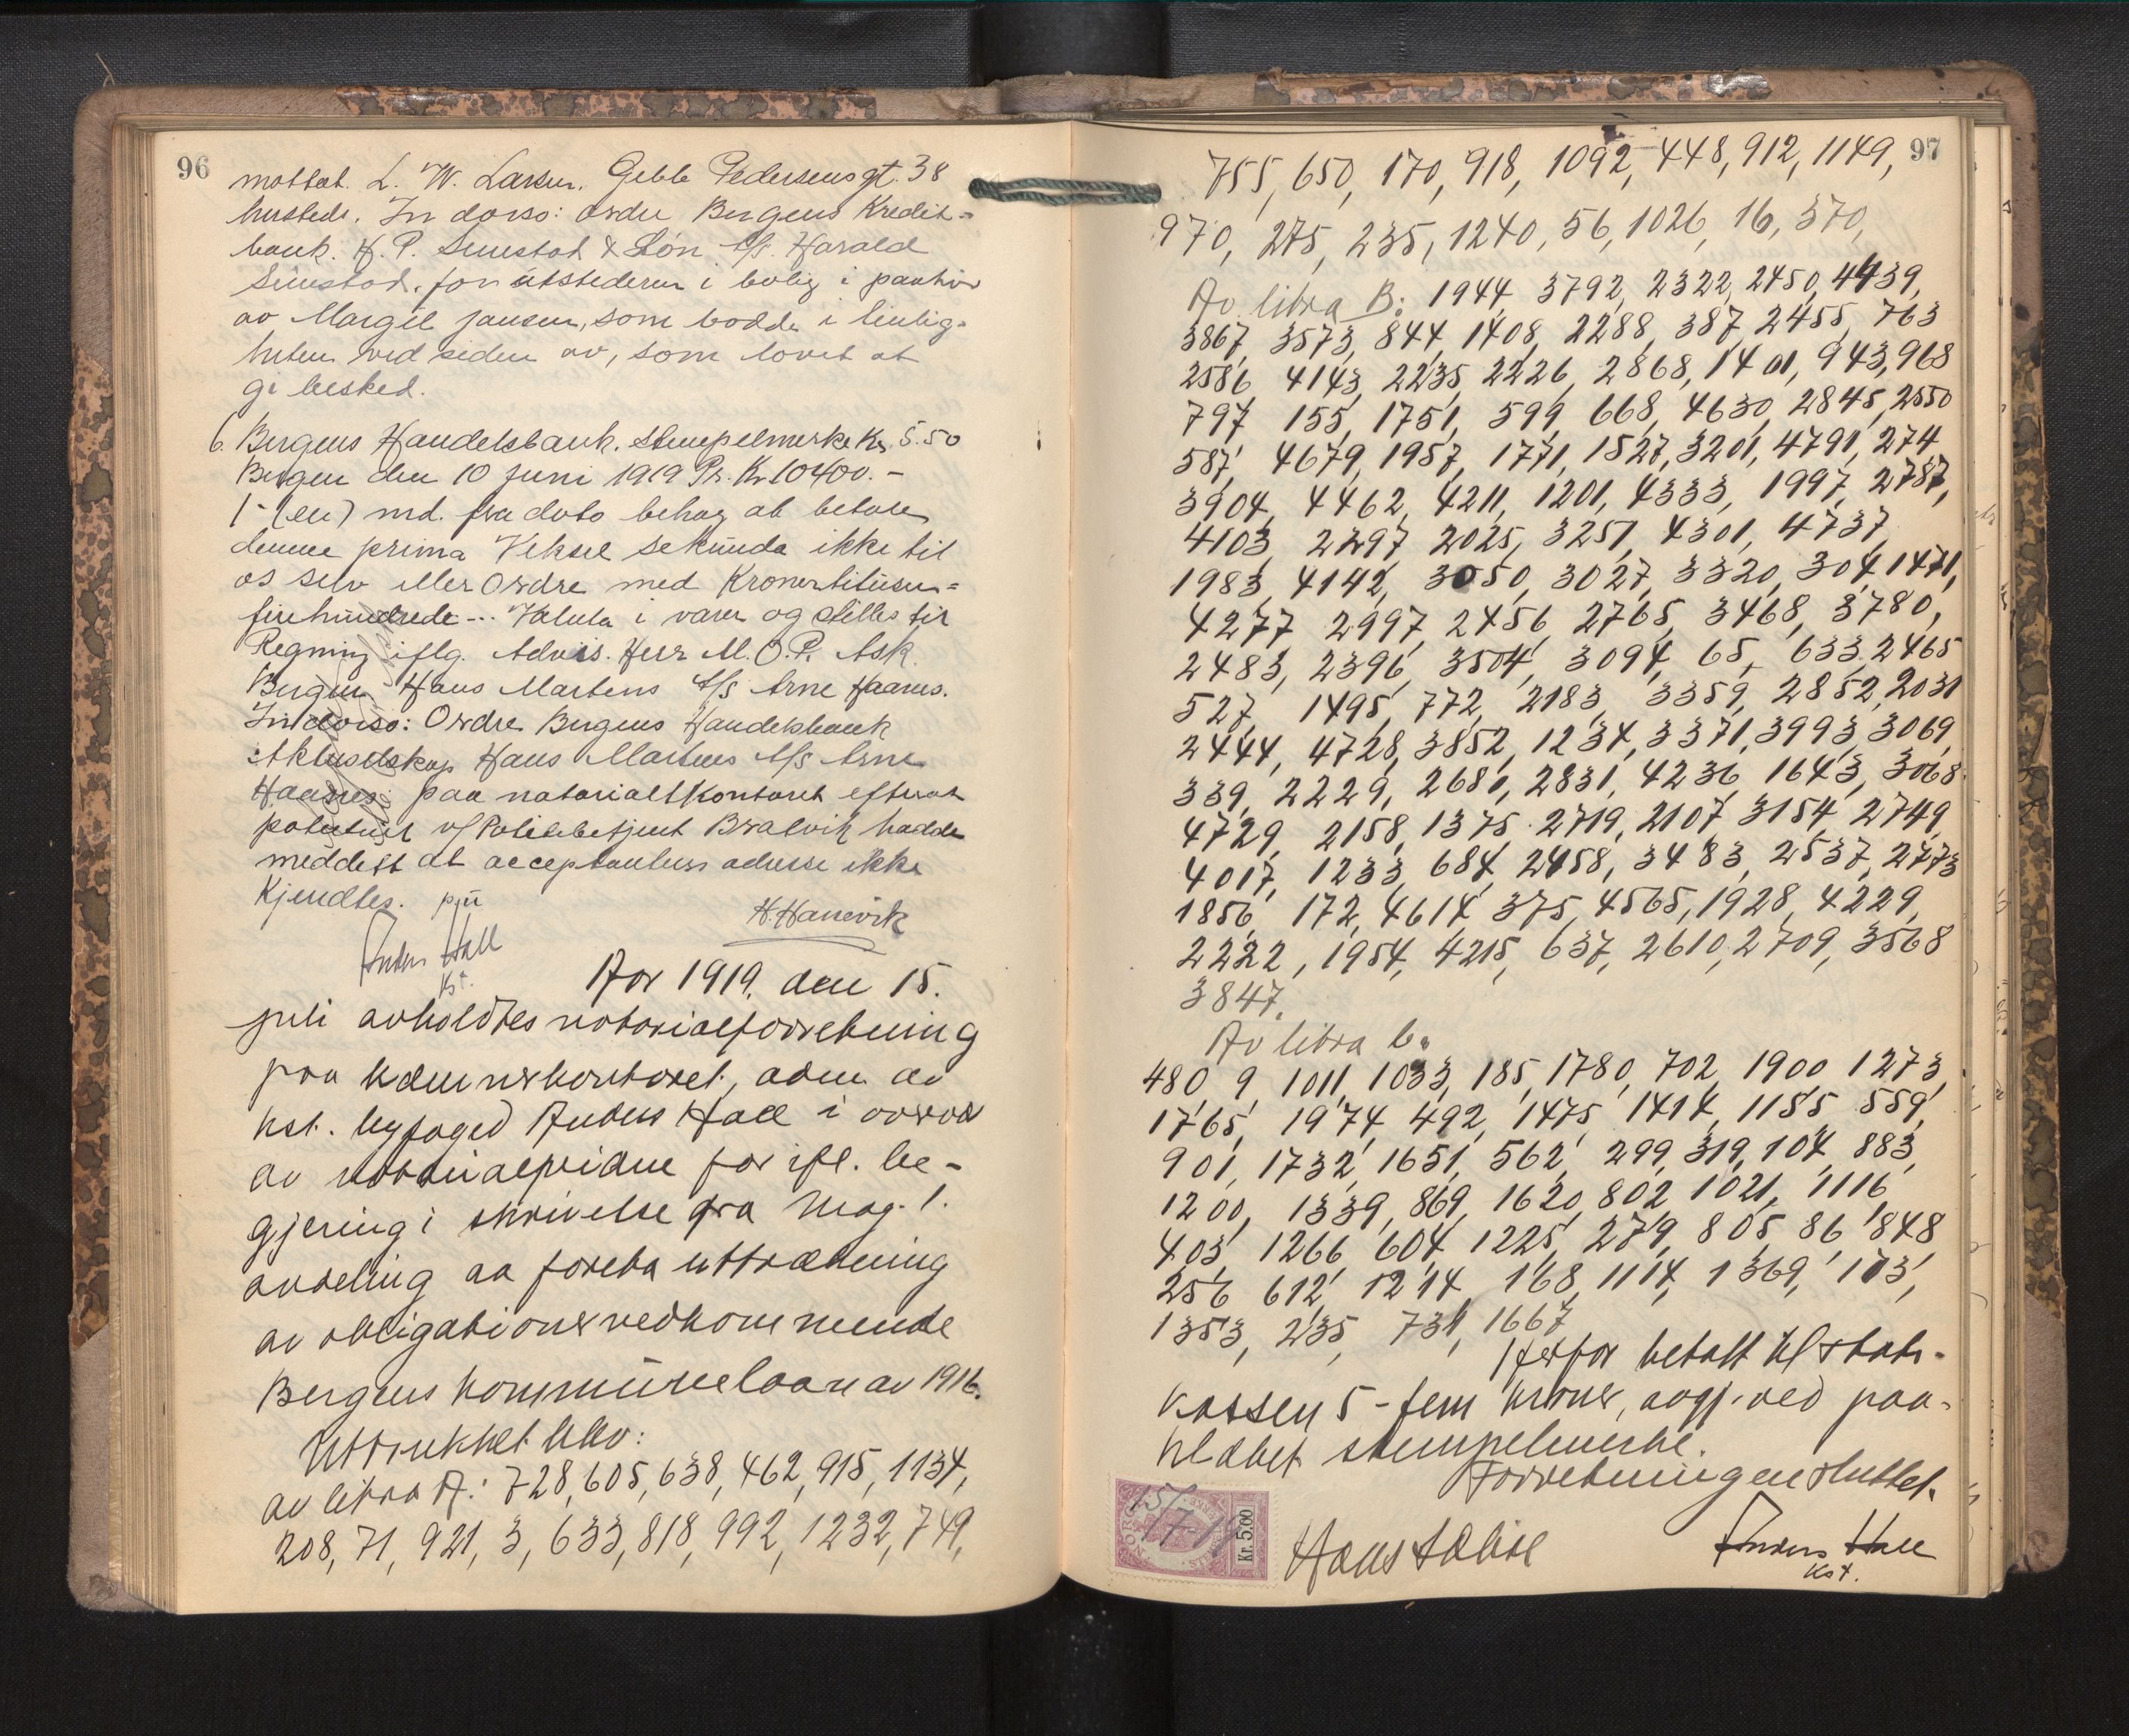 96
mottat. L. W. Larsen. Gebb Pedersensgt. 38
hersteds. In dorso: Ordre Bergens Kredit-
bank. H. P. Simestad & Søn Af. Harald
Simestad. for utstederen i bolig i paahør
av Margit Jansen, som bodde i leilig-
heten ved siden av, som lovet at
gi besked.
6. Bergens Handelsbank. Stempelmerke Kr. 5.50
Bergen den 10 Juni 1919 Pr. Kr 10400.-
1-(en) md. fra dato behag at betale
denne prima Veksel sekunda ikke til
os selv eller Ordre med Kronertitusen-
firehundrede--- Valuta i varer og stilles til
Regning iflg. Advis. Herr M. O. P. Ask.
Bergen Hans Martens A/S Arne Haanes.
In dorso: Ordre Bergens Handelsbank
Aktieselskap Hans Martens A/S Arne
Haanes: paa notarialkontoret efterat
politiet v/ Politibetjent Bralvik hadde
meddelt at acceptantens adresse ikke
Kjendtes. pju
H. Hanevik
Anders Hall
Kst.
Aar 1919, den 15.
juli avholdtes notarialforretning
paa kæmnerkontoret, adm. av
kst. byfoged Anders Hall i nærvær
av notarialvidne for ifl. be-
gjering i skrivelse fra Mag. 1.
avdeling aa foreta uttrækning
av obligationer vedkommende
Bergens kommunelaan av 1916.
Uttrukket blev:
av litra A: 728, 605, 638, 462, 915, 1134,
208, 71, 921, 3, 633, 818, 992, 1232, 749,
97
755, 650, 170, 918, 1092, 448, 912, 1149,
970, 275, 235, 1240, 56, 1026, 16, 370,
Av litra B: 1944, 3792, 2322, 2450, 4439,
3867, 3573, 844, 1408, 2288, 387, 2455, 763
2586, 4143, 2235, 2226, 2868, 1401, 943, 968
797, 155, 1751, 599, 668, 4630, 2845, 2550
587, 4679, 1957, 1771, 1527, 3201, 4791, 274
3904, 4462, 4211, 1201, 4333, 1997, 2787,
4103, 2297, 2025, 3251, 4301, 4737,
1983, 4142, 3050, 3027, 3320, 304, 1471,
4277, 2997, 2456, 2765, 3468, 3780,
2483, 2396, 3504, 3094, 65, 633, 2465
527, 1495, 772, 2183, 3359, 2852, 2031
2444, 4728, 3852, 1234, 3371, 3993, 3069,
339, 2229, 2680, 2831, 4236, 1643, 3068
4729, 2158, 1375, 2719, 2107, 3154, 2749,
4017, 1233, 684, 2458, 3483, 2537, 2773
1856, 172, 4614, 375, 4565, 1928, 4229,
2222, 1954, 4215, 637, 2610, 2709, 3568
3847.
Av litra C.
480, 9, 1011, 1033, 185, 1780, 702, 1900, 1273,
1765, 1974, 492, 1475, 1414, 1155, 559,
901, 1732, 1651, 562, 299, 319, 104, 883,
1200, 1339, 869, 1620, 802, 1021, 1116,
403, 1266, 604, 1225, 279, 805, 86, 848
256, 612, 1214, 168, 1114, 1369, 103,
1353, 235, 731, 1667
Herfor betalt til stats-
kassen 5 - fem kroner, avgj. ved paa-
klæbet stempelmerke.
Forretningen sluttet.
15/7-19
Kr. 5.00
Anders Hall
Kst.